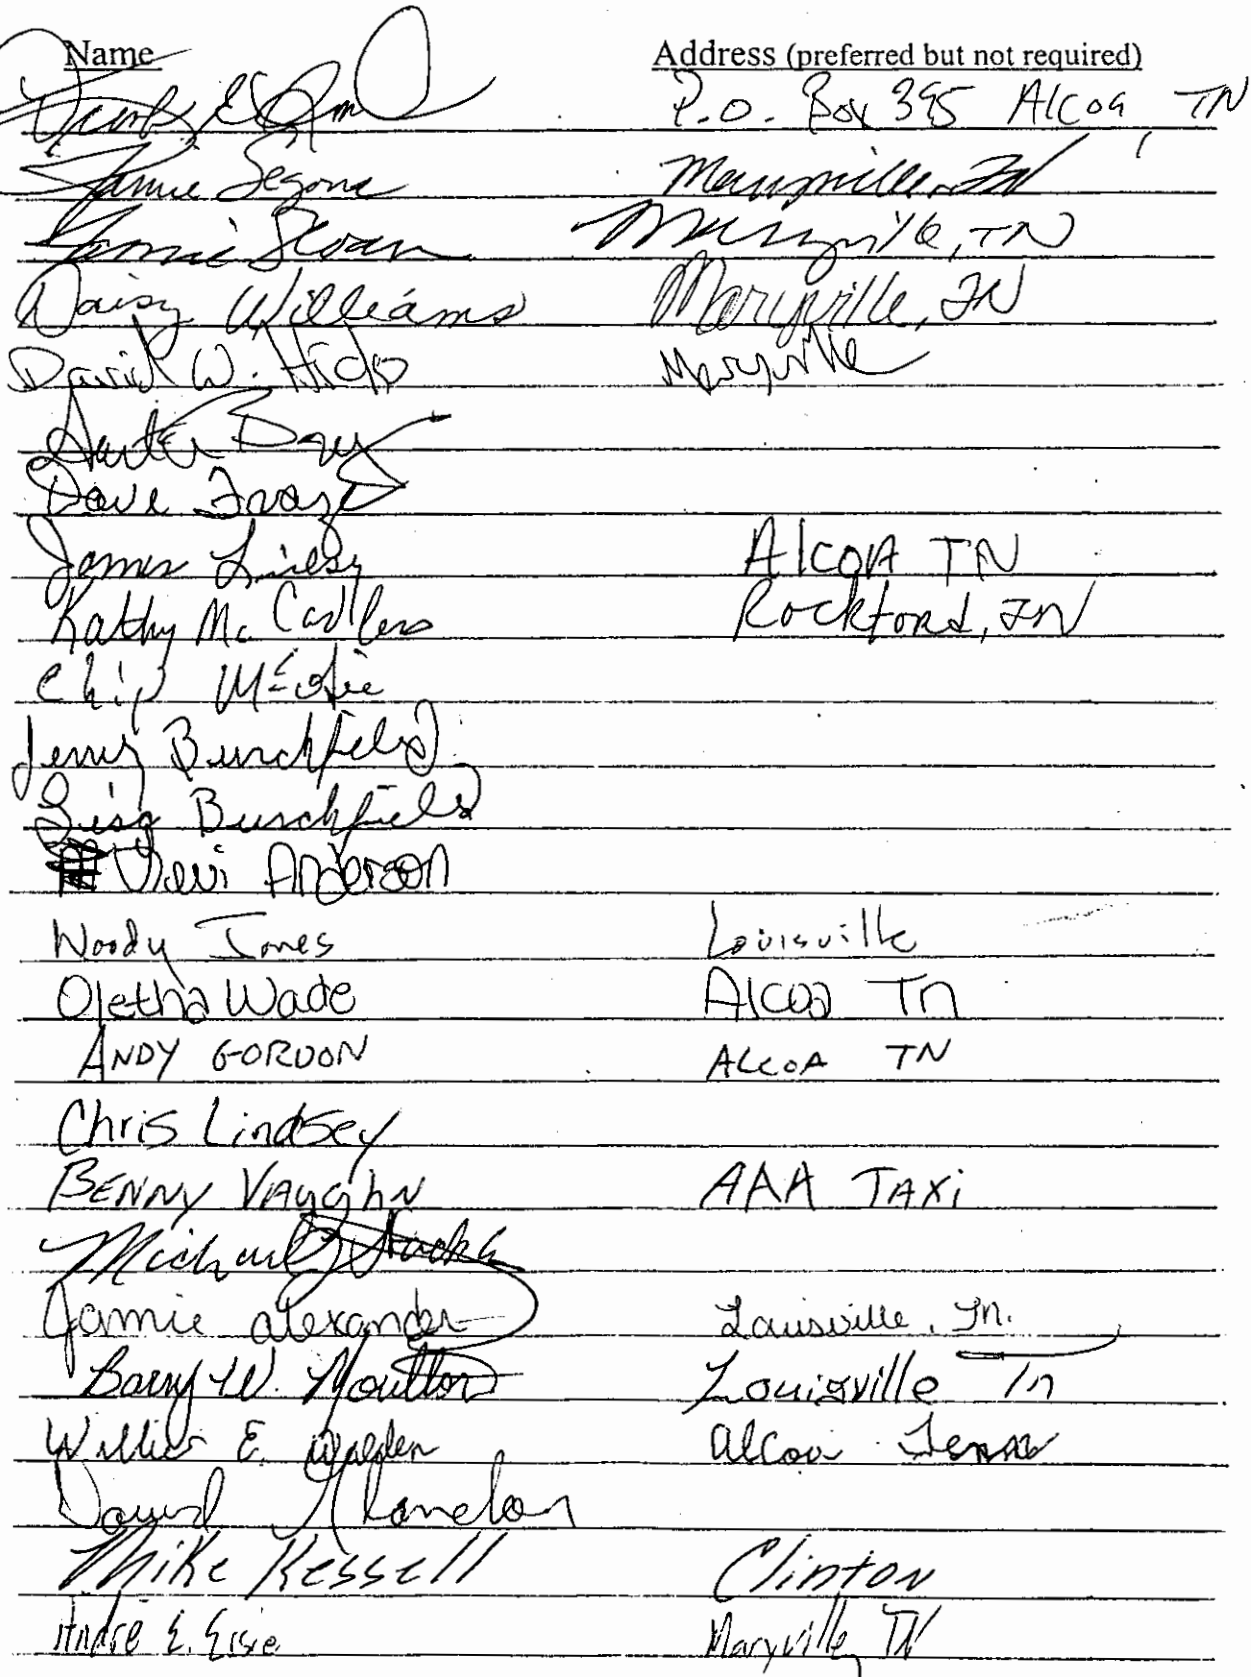 Name Address (preferred but not required)
P.O. Box 395 Alcoa, TN
Maryville, TN
Sloan Maryville, TN
Daisy Williams Maryville, TN
David W. Hicks Maryville
Dave
James Alcoa TN
Kathy Mc Rockford, TN
Chip
Jerry Burchfield
Lisa Burchfield
Anderson
Woody Jones Louisville
Oletha Wade Alcoa Tn
ANDY GORDON ALCOA TN
Chris Lindsey
BENNY VAUGhN AAA TAXi
Michael
Jamie alexander Louisville, Tn.
Barry W. Moulton Louisville Tn
E. Walden alcoa Tenn
David
Mike Kessell Clinton
Andre E. Maryville, TN